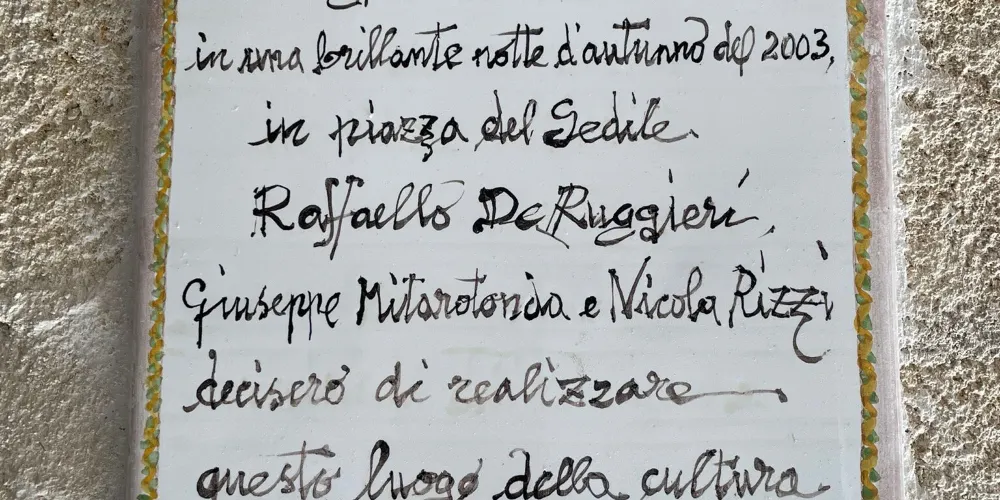 in una brillante notte d'autunno del 2003,
in piazza del Sedile.
Raffaello De Ruggieri,
Giuseppe Mitarotonda e Nicola Rizzi
decisero di realizzare
questo luogo della cultura.